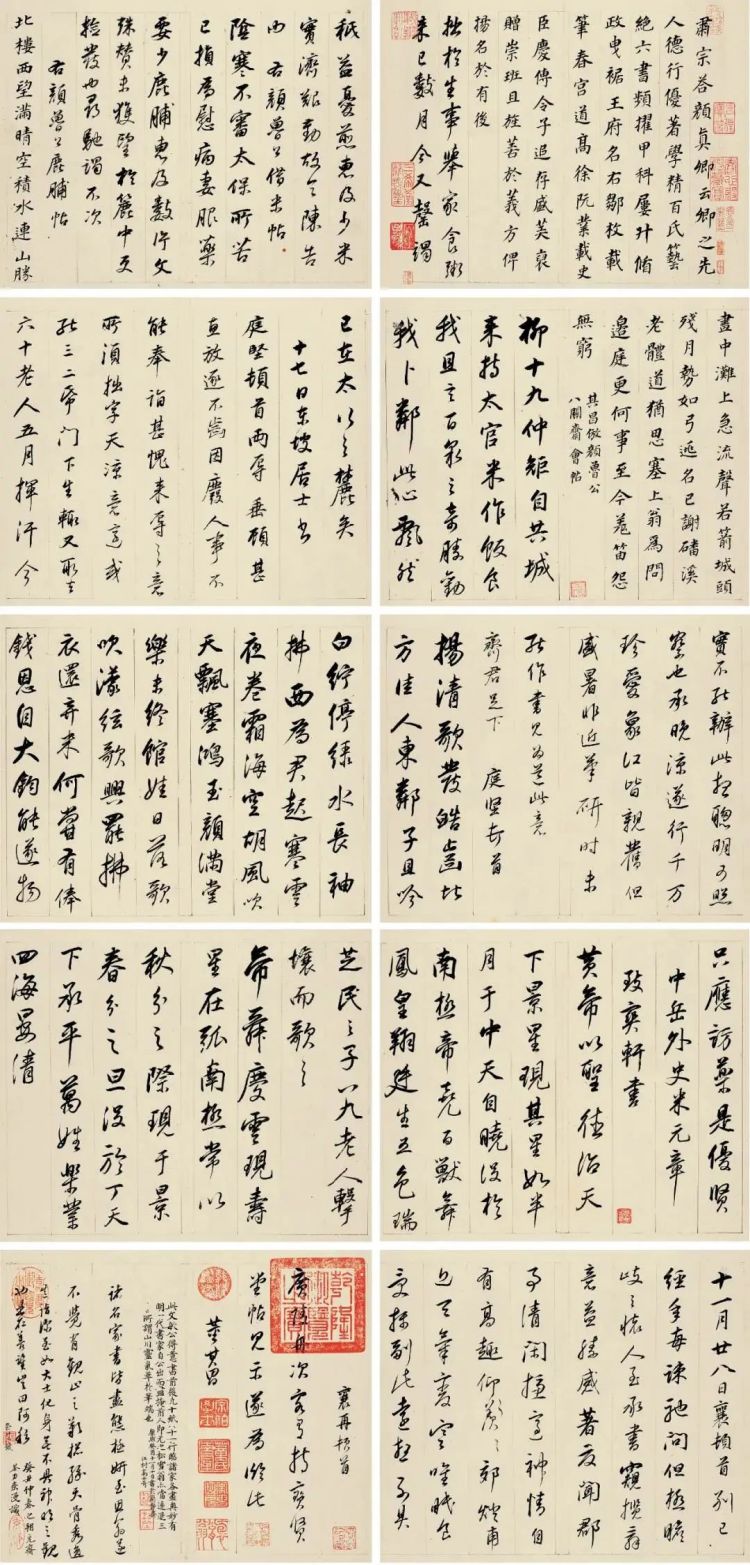 肅宗答顏真卿云卿之先
人德行優著學精百氏藝
絕六書頻擢甲科屢升循
政曳裾王府名右鄒枚載
筆春宮道高徐阮業載史
臣慶傳令子追存盛美褒
贈崇班且旌善於義方俾
揚名於有後
拙於生事舉家食粥
来已數月今又罄竭
秖益憂煎惠及少米
實濟艱勤故令陳告
右顏魯公借米帖
陰寒不審太保所苦
已損為慰病妻服藥
要少鹿脯惠及數片文
殊贊未獲望於籠中更
撿發也尋馳謁不次
右顏魯公鹿脯帖
北樓西望滿晴空積水連山勝
畫中灘上急流聲若箭城頭
殘月勢如弓名已謝磻溪
老體道猶思塞上翁為問
邊庭更何事至今羌笛怨
無窮
其昌倣顏魯公
八關齋會帖
柳十九仲矩自共城
来持太官米作飯食
我且言百泉之奇勝勸
我卜鄰此心飄然
已在太行之麓矣
十七日東坡居士書
庭堅頓首兩辱垂顧甚
放逐不齒因廢人事不
能奉詣甚愧来辱之意
所須拙字天涼意適或
能三二紙門下生輒又取去
六十老人五月揮汗今
實不能辦此想聰明可照
察也承晚涼遂行千万
珍愛象江皆親舊但
盛暑非近筆研時未
能作書見為道此意
齊君足下 庭堅頓首
揚清歌發皓齒北
方佳人東鄰子且吟
白紵停綠水長袖
拂面為君起寒雲
夜卷霜海空胡風吹
天飄塞鴻玉顏滿堂
樂未終館娃日落歌
吹濛弦歌興罷拂
衣還弃来何嘗有俸
錢恩自大鈞能逐物
只應訪藥是優賢
中岳外史米元章
致爽軒書
黃帝以聖德治天
下景星現其星如半
月于中天自曉没於
南極帝堯百獸舞
鳳皇翔廷生五色瑞
芝民之子八九老人擊
壤而歌之
帝舜慶雲現壽
星在弧南極常以
秋分之際現于景
春分之旦没於丁天
下承平萬姓樂業
四海晏清
十一月廿八日襄頓首別已
經年每馳問但極瞻
之懷人至承書竊攬
意益感著聞郡
清閑神情自
有高趣仰郊
近天氣寒唯眠食
副此遠不具
襄再頓首
廣陵舟次客有持寶賢
堂帖見示遂為臨此
董其昌
此文敏公得意書前後九十
明一代書家自公出而
名家書皆盡態極妍
不覺